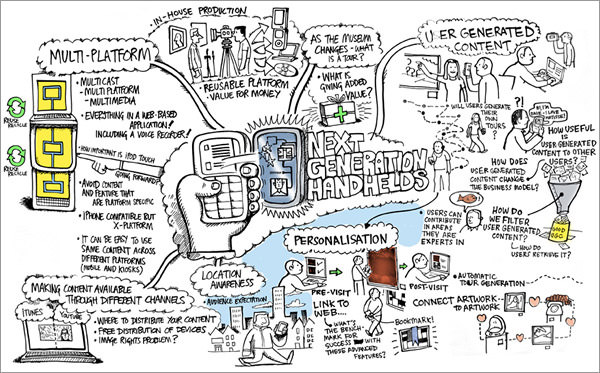 MULTI-PLATFORM
• MULTICAST
- MULTI PLATFORM
- MULTIMEDIA
• EVERYTHING IN A WEB-BASED
APPLICATION!
INCLUDING A VOICE RECORDER!
REUSE
RECYCLE
REUSE
RECYCLE
HOW IMPORTANT IS IPOD TOUCH
GOING FORWARD?
• AVOID CONTENT
AND FEATURE THAT
ARE PLATFORM SPECIFIC
• IPHONE COMPATIBLE BUT
X-PLATFORM
• IT CAN BE EASY TO USE
SAME CONTENT ACROSS
DIFFERENT PLATFORMS
(MOBILE AND KIOSKS)
MAKING CONTENT AVAILABLE
THROUGH DIFFERENT CHANNELS
ITUNES
YOUTUBE
• WHERE TO DISTRIBUTE YOUR CONTENT
• FREE DISTRIBUTION OF DEVICES
• IMAGE RIGHTS PROBLEM?
• IN-HOUSE PRODUCTION
• REUSABLE PLATFORM
VALUE FOR MONEY
AS THE MUSEUM
CHANGES - WHAT
IS A TOUR?
• WHAT IS
GIVING ADDED
VALUE?
NEXT
GENERATION
HANDHELDS
USER GENERATED
CONTENT
WILL USERS GENERATE
THEIR OWN
TOURS?
?!
HOW USEFUL
IS
USER GENERATED
CONTENT TO OTHER
USERS?
HOW DOES
USER GENERATED
CONTENT CHANGE
THE BUSINESS MODEL?
USERS CAN
CONTRIBUTE
IN AREAS
THEY ARE
EXPERTS IN
HOW DO WE
FILTER
USER GENERATED
CONTENT?
GOOD
UGC
HOW DO
USERS RETRIEVE IT?
LOCATION
AWARENESS
• AUDIENCE EXPECTATION
PERSONALISATION
PRE-VISIT
LINK TO
WEB....
WHAT'S
THE BENCH-
MARK FOR
SUCCESS WITH
THESE ADVANCED
FEATURES?
BOOKMARK!
POST-VISIT
• AUTOMATIC
TOUR GENERATION
CONNECT ARTWORK
TO ARTWORK